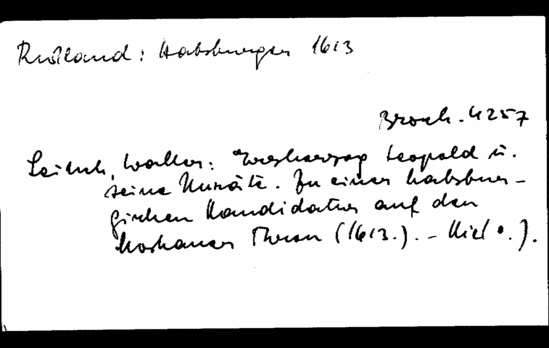 Rußland: Habsburger 1613
Brosch. 4257
Leitsch, Walter: Erzherzog Leopold u.
seine Kunäte. Zu einer habsbur-
gischen Kandidatur auf den
Moskauer Thron (1613.). - Kiel o. J.